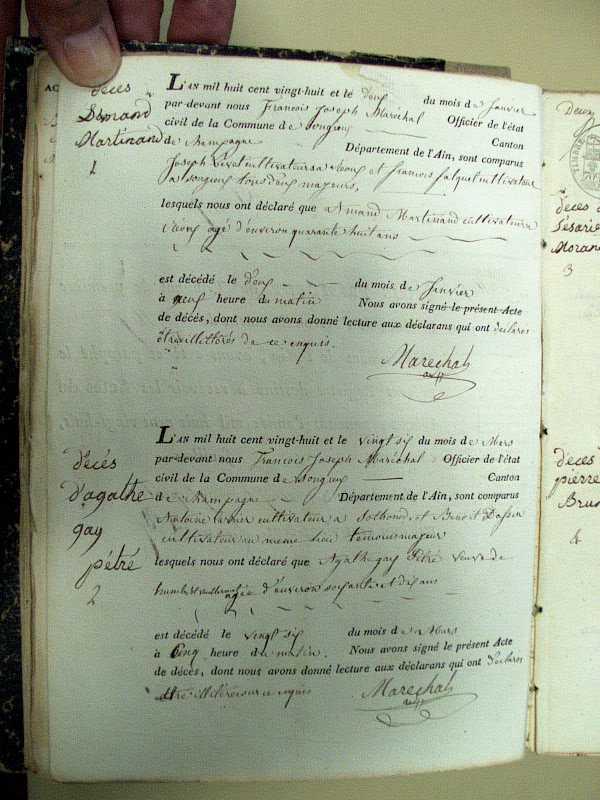 AC
décès
Armand
Martinand
1
L'AN mil huit cent vingt-huit et le deux du mois de Janvier
par-devant nous Francois Joseph Maréchal Officier de l'état
civil de la Commune de Songieu Canton
de Champagne Département de l'Ain, sont comparus
Joseph cultivateur a et francois cultivateur
a Songieu tous deux majeurs,
lesquels nous ont déclaré que Armand Martinand cultivateur a
âgé d'environ quarante huit ans
est décédé le deux du mois de Janvier
à neuf heure du matin Nous avons signé le présent Acte
de décès, dont nous avons donné lecture aux déclarans qui ont déclarés
être illitérés de ce enquis.
Marechal
décés
d'agathe
gay
pétré
2
L'AN mil huit cent vingt-huit et le vingt six du mois de Mars
par-devant nous Francois Joseph Maréchal Officier de l'état
civil de la Commune de Songieu Canton
de Champagne Département de l'Ain, sont comparus
Antoine cultivateur a Sothonod, et Benoit
cultivateur au meme lieu temoins majeur
lesquels nous ont déclaré que Agathe gay Pétré veuve de
humbert agée d'environ soixante et dix ans
est décédé le vingt six du mois de Mars
à cinq heure du matin. Nous avons signé le présent Acte
de décès, dont nous avons donné lecture aux déclarans qui ont déclarés
être illitérés sur ce enquis
Marechal
Deux
décès
Césarie
Moran
3
décés
pierre
Brun
4